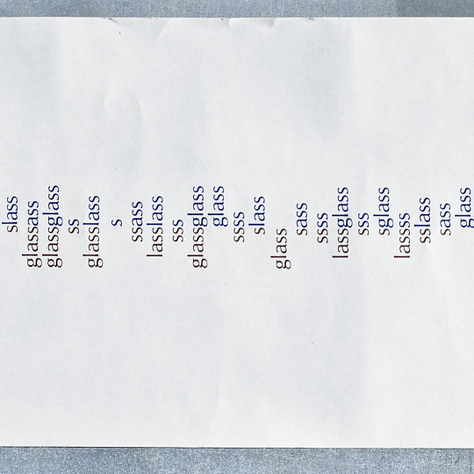 slass
glassass
glassglass
ss
glasslass
s
ssass
lasslass
sss
glassglass
glass
ssss
slass
glass
sass
ssss
lassglass
sss
sglass
lassss
sslass
sass
glass